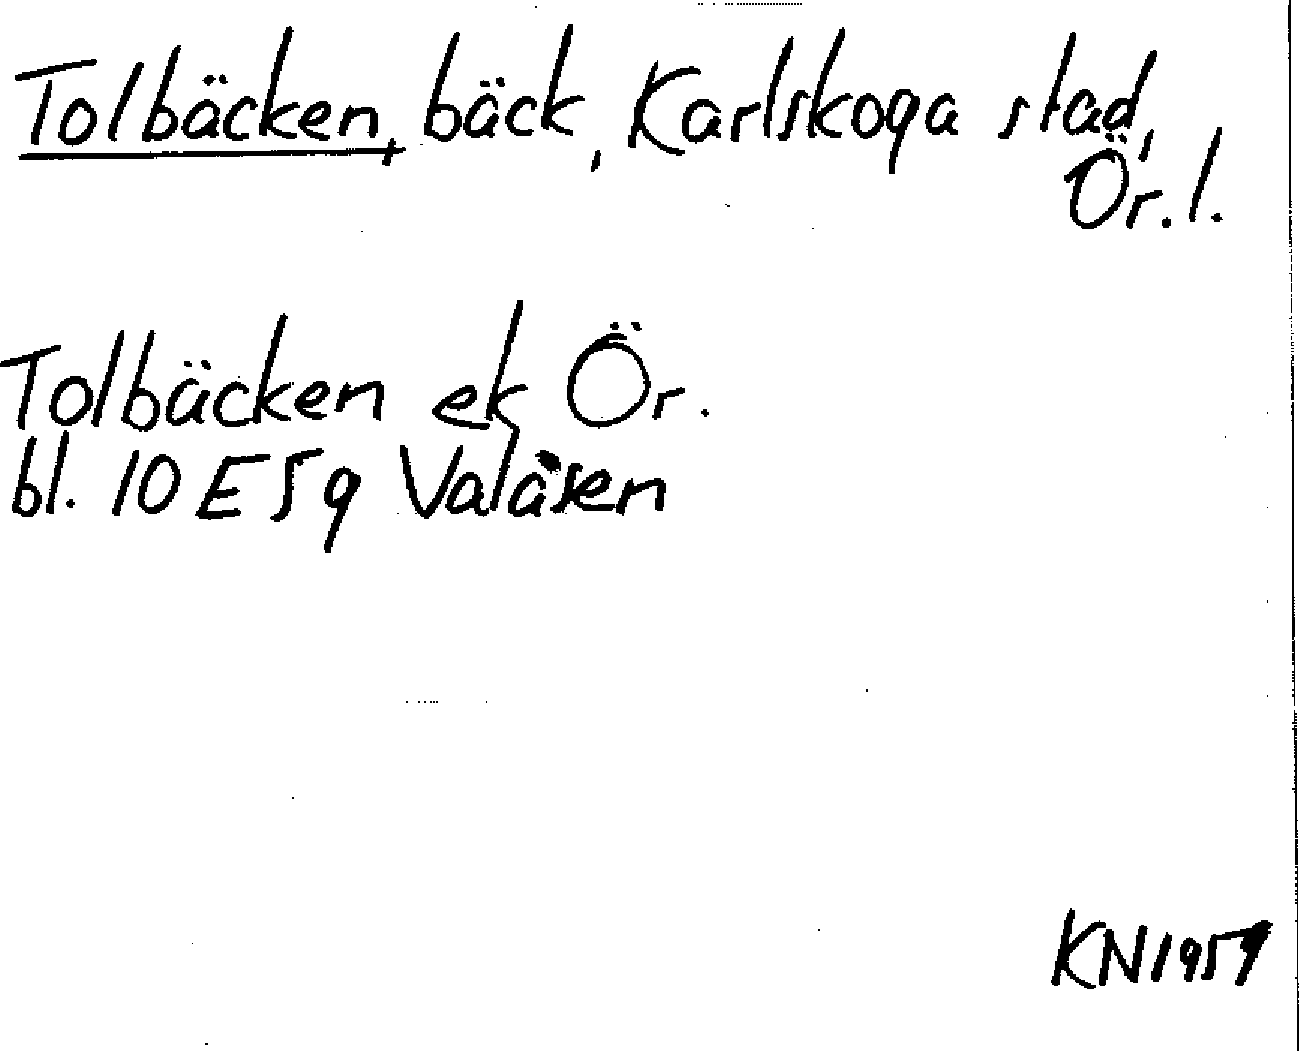 Tolbäcken, bäck, Karlskoga stad,
Ör. l.
Tolbäcken ek Ör.
bl. 10 E 5 g Valåsen